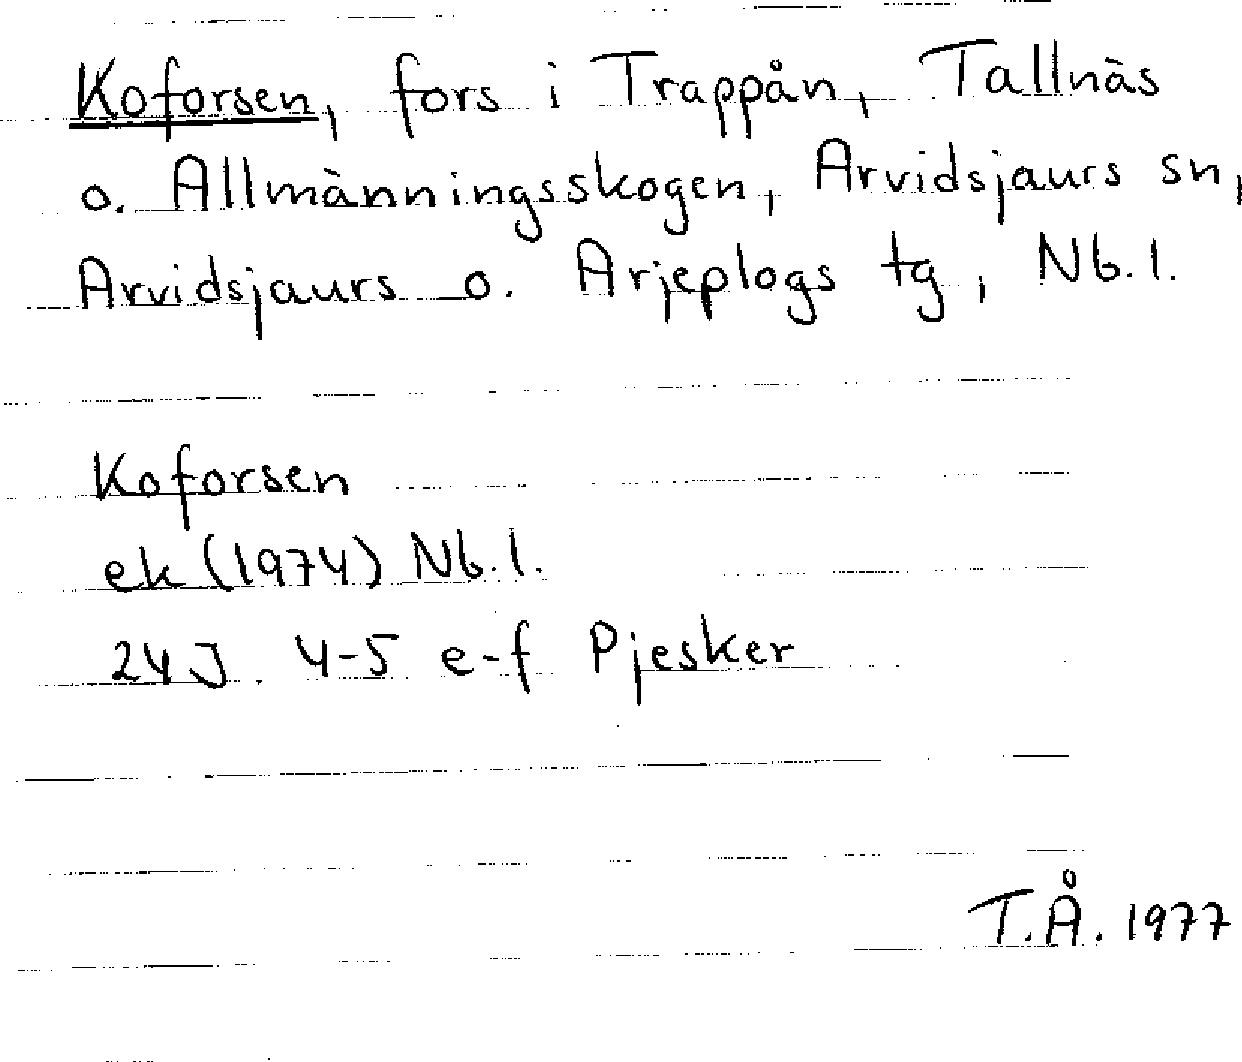 Koforsen, fors i Trappån, Tallnäs
o. Allmänningsskogen, Arvidsjaurs sn,
Arvidsjaurs o. Arjeplogs tg, Nb.l.
Koforsen
ek (1974) Nb.l.
24 J. 4-5 e-f Pjesker
T.Å. 1977